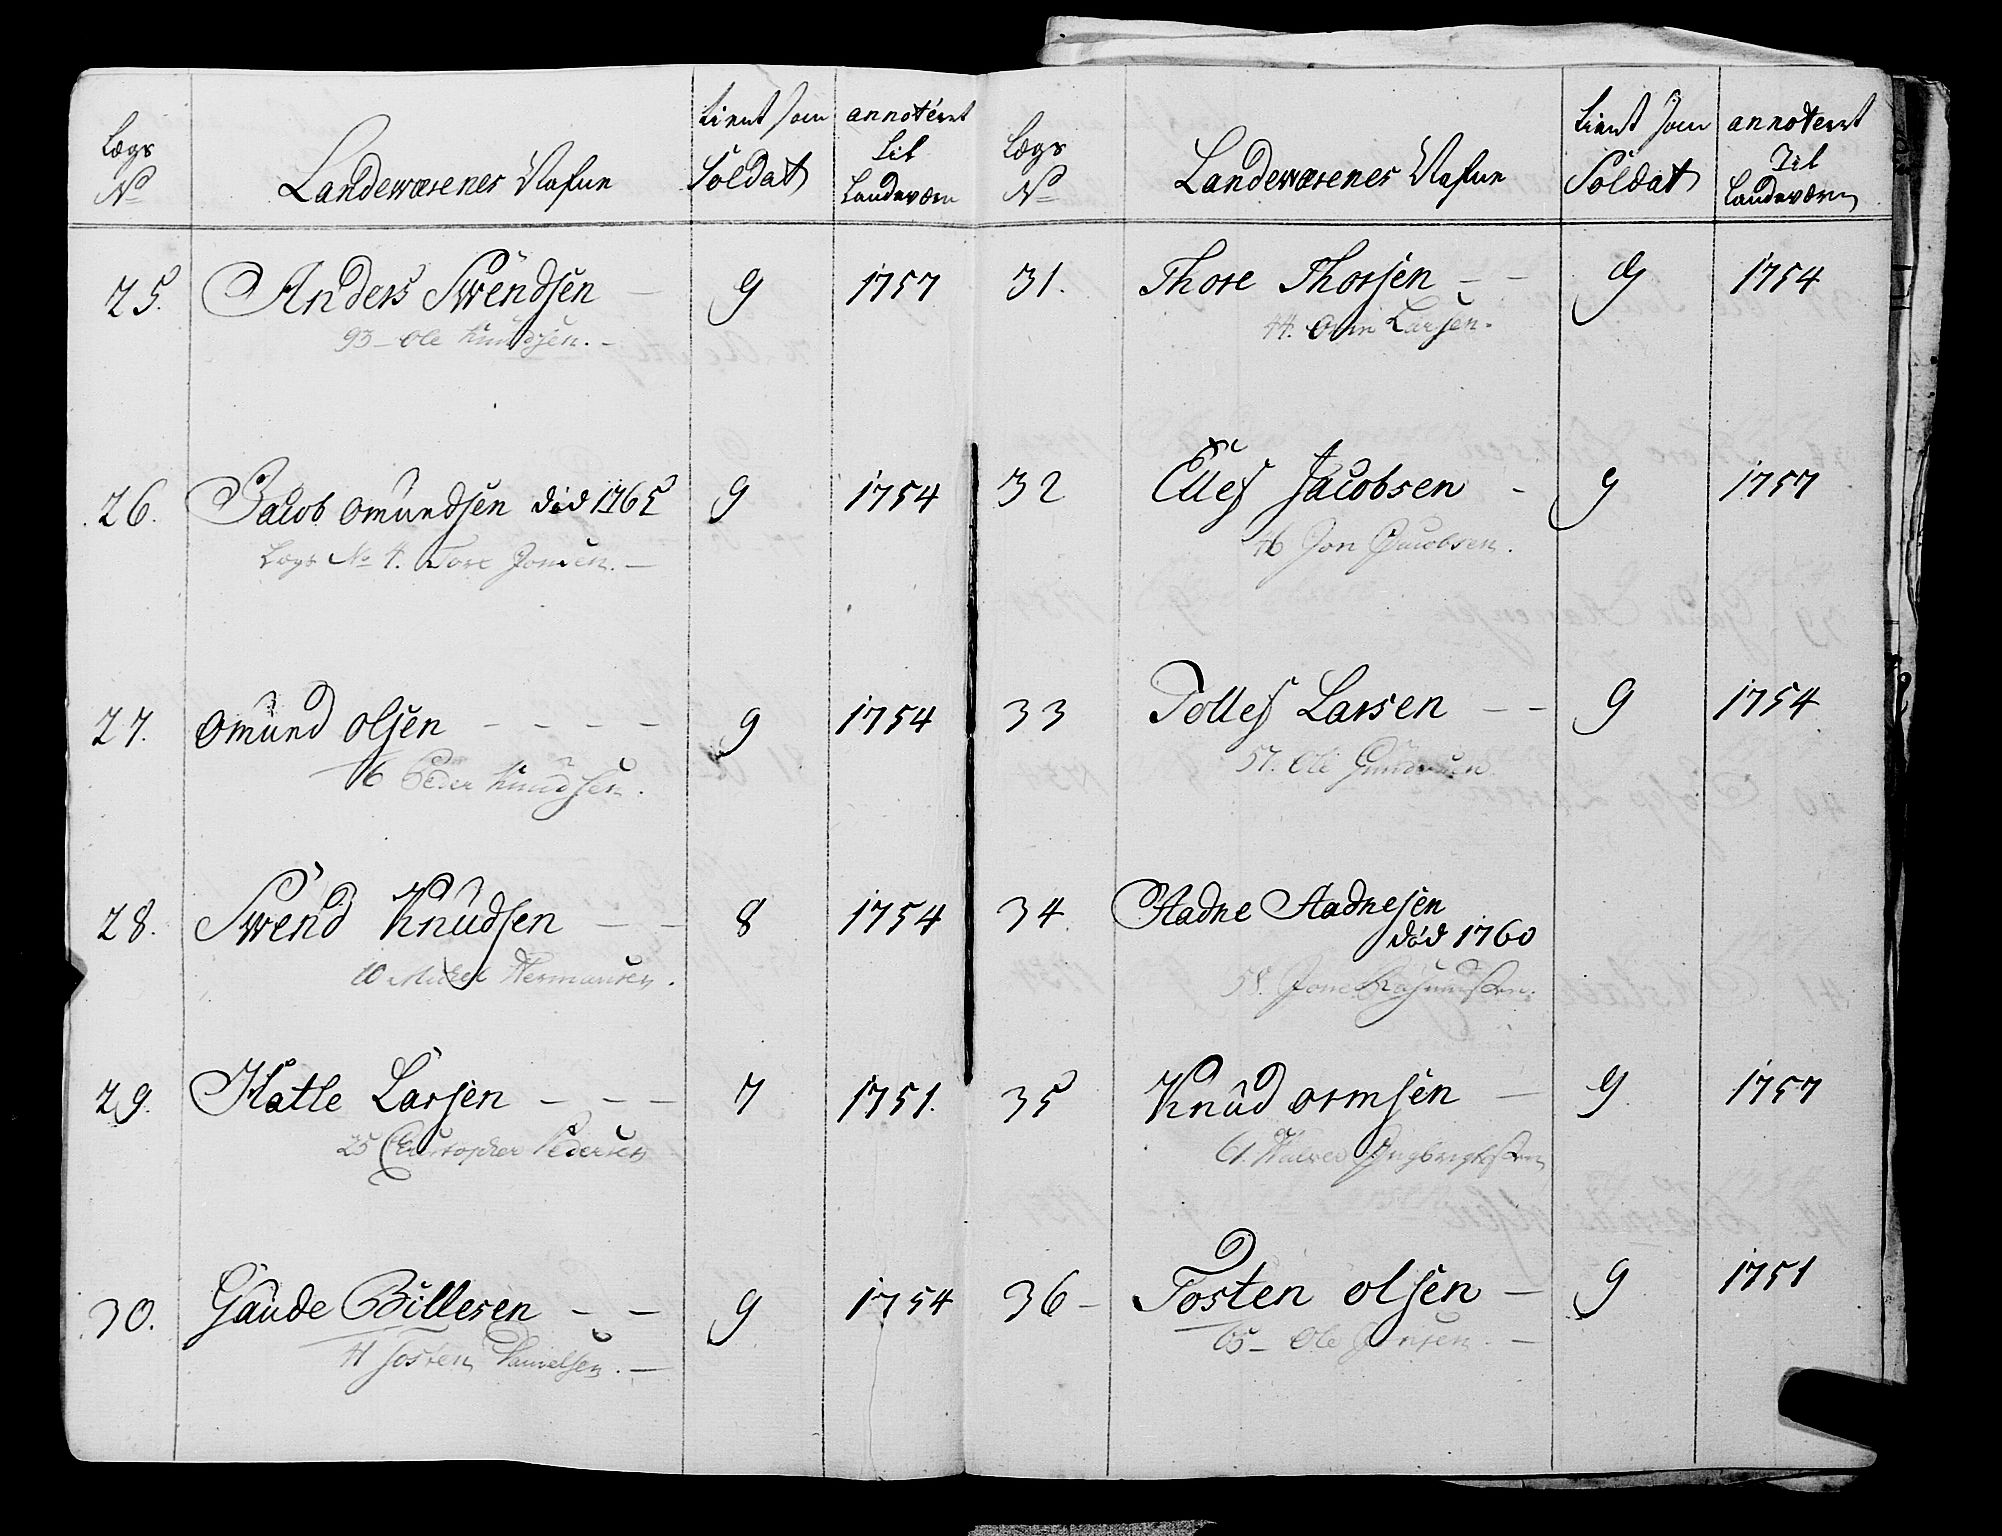 Lægs No Landewærenes Nafne tient som Soldat annoteret til Landeværn
25. Anders Swendsen — 9 1757
93 – Ole Knudsen. –
26. Jacob Omundsen död 1765 9 1754
Lægs No 4. Tore Jonsen. —
27. Omund Olsen – – – – 9 1754
16 Peder Knudsen.
28. Swend Knudsen – – 8 1754
10 Michel Hermansen.
29. Hatle Larsen – – – 7 1751.
25 Christopher Pedersen
30. Gaude Billesen – – 9 1754
41 Tosten Danielsen. —
Lægs No Landewærenes Nafne tient som Soldat annoteret Til Landeværn
31. Thore Thorsen – – 9 1754
44. Orm Larsen.
32 Ellef Jacobsen - 9 1757
46 Jon Jacobsen.
33 Tollef Larsen – – 9 1754
57. Ole
34. Aadne Aadnesen
död 1760
58. Jone Rasmussen.
35 Knud Ormsen — 9. 1757
61. Halvor Ingbrigtsen
36 – Tosten Olsen — 9 1751
65 – Ole Jensen. —